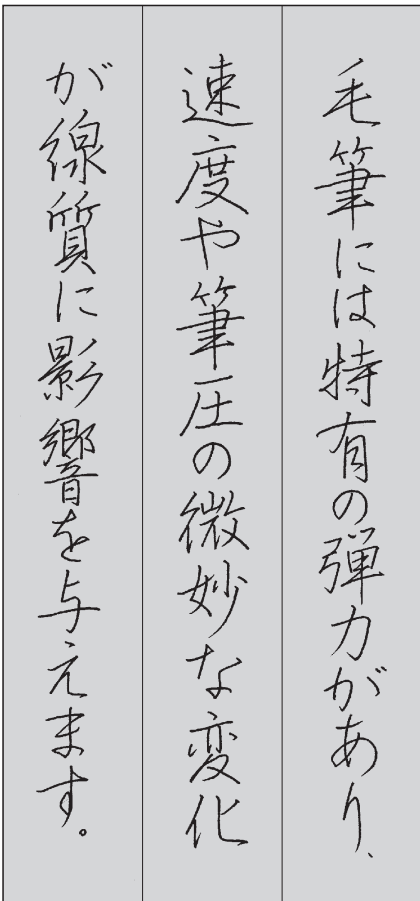 毛筆には特有の弾力があり、
速度や筆圧の微妙な変化
が線質に影響を与えます。